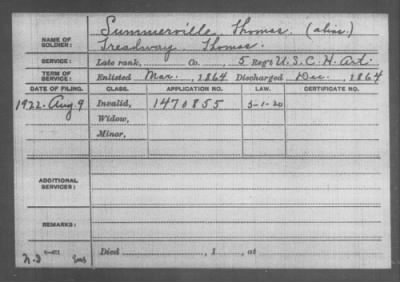 NAME OF SOLDIER: Summerville, Thomas. (alias)
Treadway, Thomas.
SERVICE: Late rank, Co. , 5 Reg't U.S.C.H. Art.
TERM OF SERVICE: Enlisted Mar. , 1864 Discharged Dec. , 1864
DATE OF FILING. CLASS. APPLICATION NO. LAW. CERTIFICATE NO.
1922-Aug. 9 Invalid, 1470855 5-1-20
Widow,
Minor,
ADDITIONAL SERVICES:
REMARKS:
Died , 1 , at